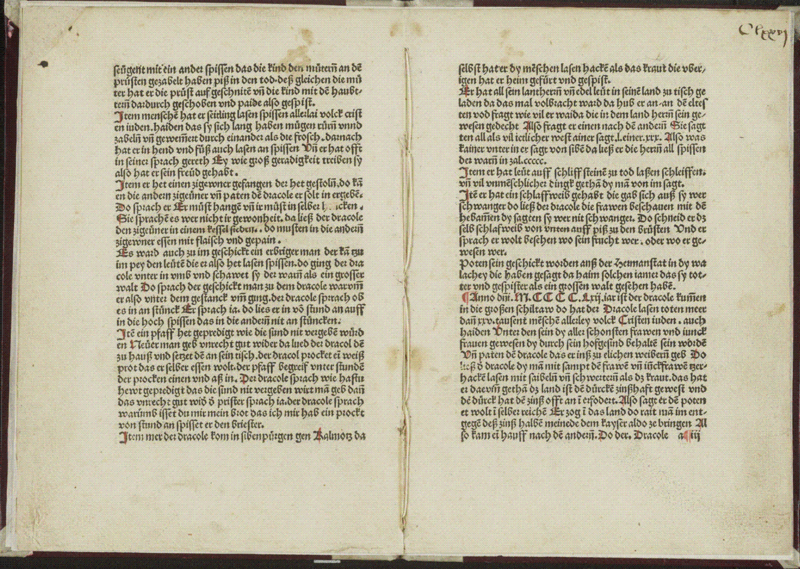 seügent mit ein ander spissen das die kind den mütern an dē
prüsten gezabelt haben piß in den tod· deß gleichen die mü
ter hat er die prüst auf geschnitē vñ die kind mit dē haubt-
tern dardurch geschoben vnd paide also gespist.
Item menschē hat er seitling lasen spissen allerlai volck crist
en iuden. haiden das sy sich lang haben mügen rürn vnnd
zabeln vñ geweműert durch einander als die frosch. darnach
hat er in hend vnd füß auch lasen an spissen Vñ er hat offt
in seiner sprach gereth Ey wie groß geradigkeit treiben sy
also hat er sein freüd gehabt.
Item er het einen zigewner gefangen der het gestoln. do kā
en die andern zigeüner vñ paten dē dracole er solt in ergebē.
Do sprach er Er müst hangē vñ ir müst in selber
Sie sprachē es wer nicht ir gewonheit. da ließ der dracole
den zigeüner in einem kessel sieden. do musten in die andern
zigewner essen mit flaisch vnd gepain.
Es ward auch zu im geschickt ein erbriger man der kā tzu
im pey den leütē die er also het lasen spissen. do ging der dra
cole vnter in vmb vnd schawet sy der warn als ein grosser
walt Do sprach der geschickt man zu dem dracole warum̄
er also vnter dem gestanck vm̄ ging. der dracole sprach ob
es in an stünck Er sprach ia. do lies er in vō stund an auff
in die hoch spissen das in die andern nit an stüncken.
Itē ein pfaff het gepredigt wie die sünd nit vergebē würd
en Neüert man geb vnrecht gut wider da lued der dracol dē
zu hauß vnd setzet dē an sein tisch. der dracol procket ein weiß
prot das er selber essen wolt. der pfaff begreif vnter stundē
der procken einen vnd aß in. Der dracole sprach wie hastu
hewt gepredigt das die sünd nit vergeben wirt mā geb dañ
das vnrecht gut wid̄ d̄ prister sprach ia. der dracole sprach
warumb isset du mir mein brot das ich mir hab ein prockt
von stund an spisset er den briester.
Item mer der dracole kom in sibenpürgen gen Kalmotz da
Clxxvj
selbst hat er dy mēschen lasen hackē als das kraut die vber-
igen hat er heim gefürt vnd gespist.
Er hat all sein lantherrn vñ edel leüt in seinē land zu tisch ge
laden da das mal volbracht ward da hub er an an dē eltes
ten vnd fragt wie vil er waida die in dem land herrn sein ge-
wesen gedecht Also fragt er einen nach dē andern Sie sagt
ten all als vil ietlicher west einer sagt. l. einer. xxx. Also was
kainer vnter in er sagt von sibē da ließ er die herrn all spissen
der warn in zal. ccccc.
Item er hat leüt auff schliff steinē zu tod laßen schleiffen.
vñ vil vnmēschlicher dingk gethā dy mā von im sagt.
Itē er hat ein schlaffweib gehabt die gab sich auß sy wer
schwanger do ließ der dracole die frawen beschawen mit dē
hebamē dy sagten sy wer nit schwanger. Do schneid er dz
selb schlafweib von vnten auff piß zu den brüsten Vnd er
sprach er wolt besehen wo sein frucht wer. oder wo er ge-
wesen wer.
Poten sein geschickt worden auß der Hermanstat in dy wa
lachey die haben gesagt da haim solchen iamer das sy tot-
ter vnd gespister als ein grossen walt gesehen habē.
Anno dm̄. M. CCCC. Lxij. iar ist der dracole kumen
in die großen schiltaw do hat der Dracole lasen töten meer
dañ xxv. tausent mēschē allerley volck Cristen iuden. auch
haiden Vnter den sein dy aller schonsten frawen vnd iunck
frauen gewesen dy durch sein hofgesind behaltē sein wordē
Vñ paten dē dracole das er ins zu elichen weibern geb Do
d̄ dracole dy mā mit sampt dē frawē vñ iunckfrawē tzer-
hackē lasen mit säbeln vñ schwertern als dz kraut. das hat
er darvm̄ gethā dz land ist dē dürckē zinßhaft gewest vnd
dē dürck hat dē zinß offt an i erfordert. Also sagt er dē poten
er wolt i selber reichē Er zog i das land do rait mā im ent-
gegē deß zinß halbē meinede dem kayser aldo ze bringen Al
so kam ei hauff nach dē andern. Do der. Dracole a iij